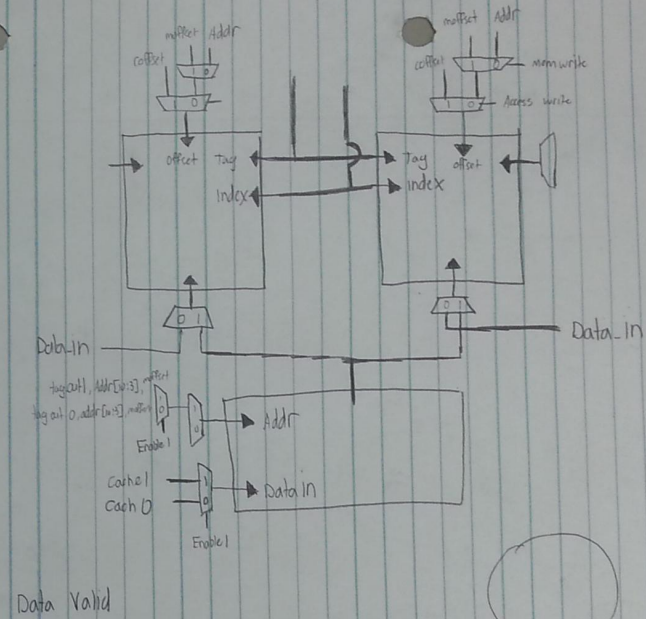 moffset Addr
moffset Addr
coffset 1 0
coffset 1 0 memwrite
1 0
1 0 Access write
offset Tag
Tag offset
Index
Index
0 1
0 1
Data_In
Data_In
tagout1, Addr[10:3], moffset
tag out 0, addr[10:3], moffset
1
0
1
0
Addr
Enable1
Cache1
Cach 0
1
0
Data In
Enable1
Data Valid